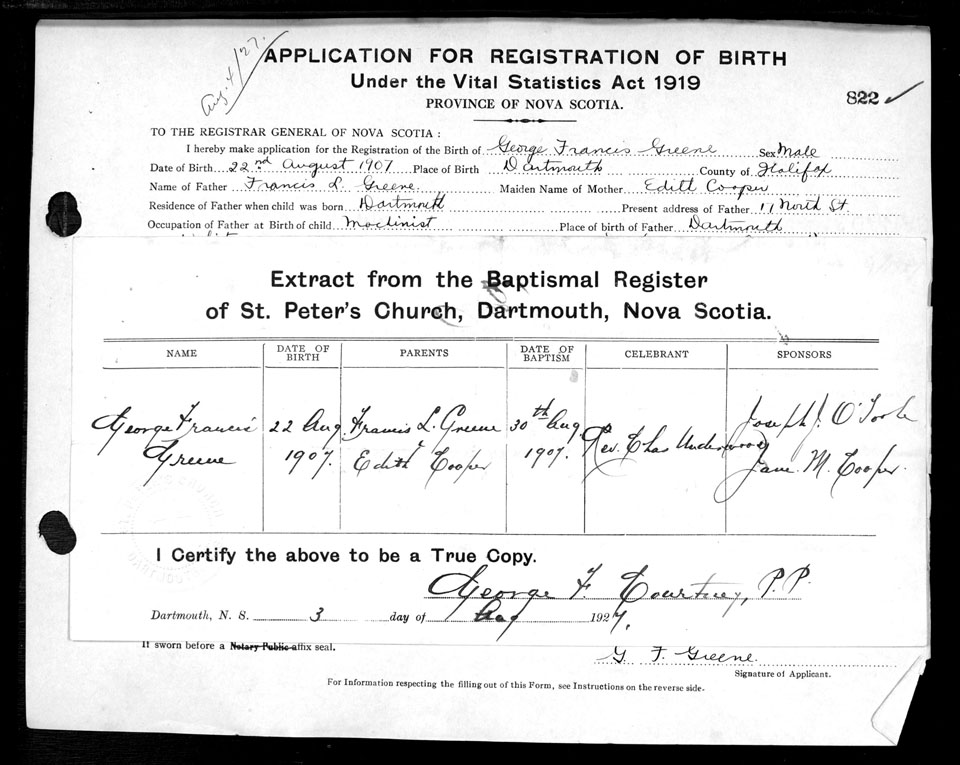 Aug. 4/27.
APPLICATION FOR REGISTRATION OF BIRTH
Under the Vital Statistics Act 1919
PROVINCE OF NOVA SCOTIA.
822 ✓
TO THE REGISTRAR GENERAL OF NOVA SCOTIA:
I hereby make application for the Registration of the Birth of George Francis Greene Sex Male
Date of Birth 22nd August 1907 Place of Birth Dartmouth County of Halifax
Name of Father Francis L. Greene Maiden Name of Mother Edith Cooper
Residence of Father when child was born Dartmouth Present address of Father 11 North St.
Occupation of Father at Birth of child Machinist Place of birth of Father Dartmouth
Extract from the Baptismal Register
of St. Peter's Church, Dartmouth, Nova Scotia.
NAME DATE OF BIRTH PARENTS DATE OF BAPTISM CELEBRANT SPONSORS
George Francis Greene 22 Aug 1907. Francis L. Greene Edith Cooper 30th Aug 1907. Rev. Chas Underwood Joseph J. O'Toole Jane M. Cooper.
I Certify the above to be a True Copy.
George F. Courtney, P.P.
Dartmouth, N. S. 3 day of Aug 1927.
If sworn before a Notary Public affix seal.
G. F. Greene.
Signature of Applicant.
For Information respecting the filling out of this Form, see Instructions on the reverse side.